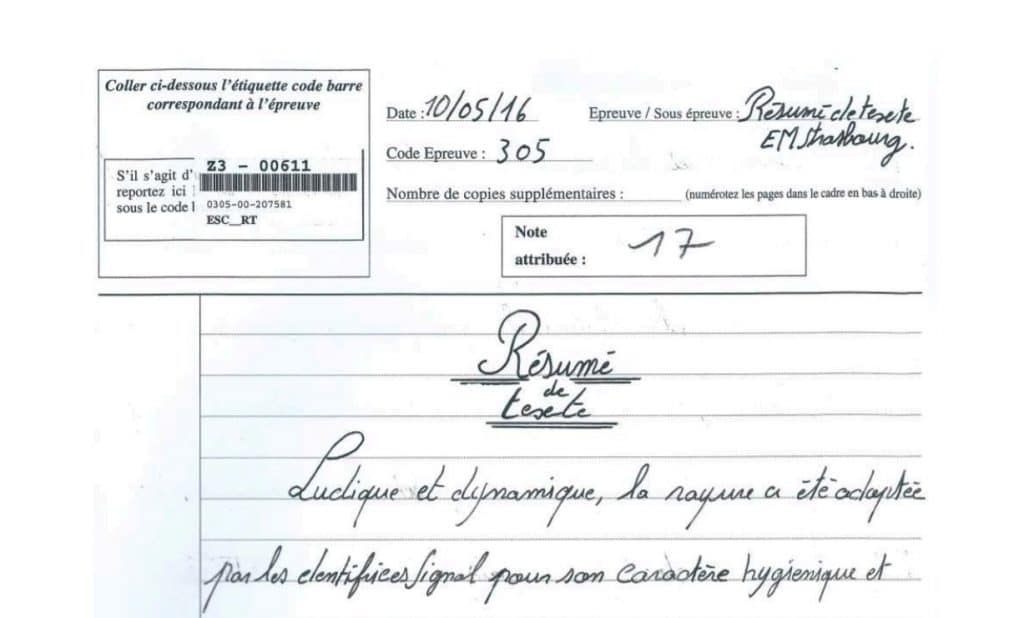 Coller ci-dessous l'étiquette code barre
correspondant à l'épreuve
S'il s'agit d'
reportez ici
sous le code l
Z3 - 00611
0305-00-207581
ESC_RT
Date : 10/05/16
Epreuve / Sous épreuve : Résumé de texte
EM Strasbourg.
Code Epreuve : 305
Nombre de copies supplémentaires :
(numérotez les pages dans le cadre en bas à droite)
Note
attribuée :
17
Résumé
de
texte
Ludique et dynamique, la rayure a été adoptée
par les dentifrices Signal pour son caractère hygienique et